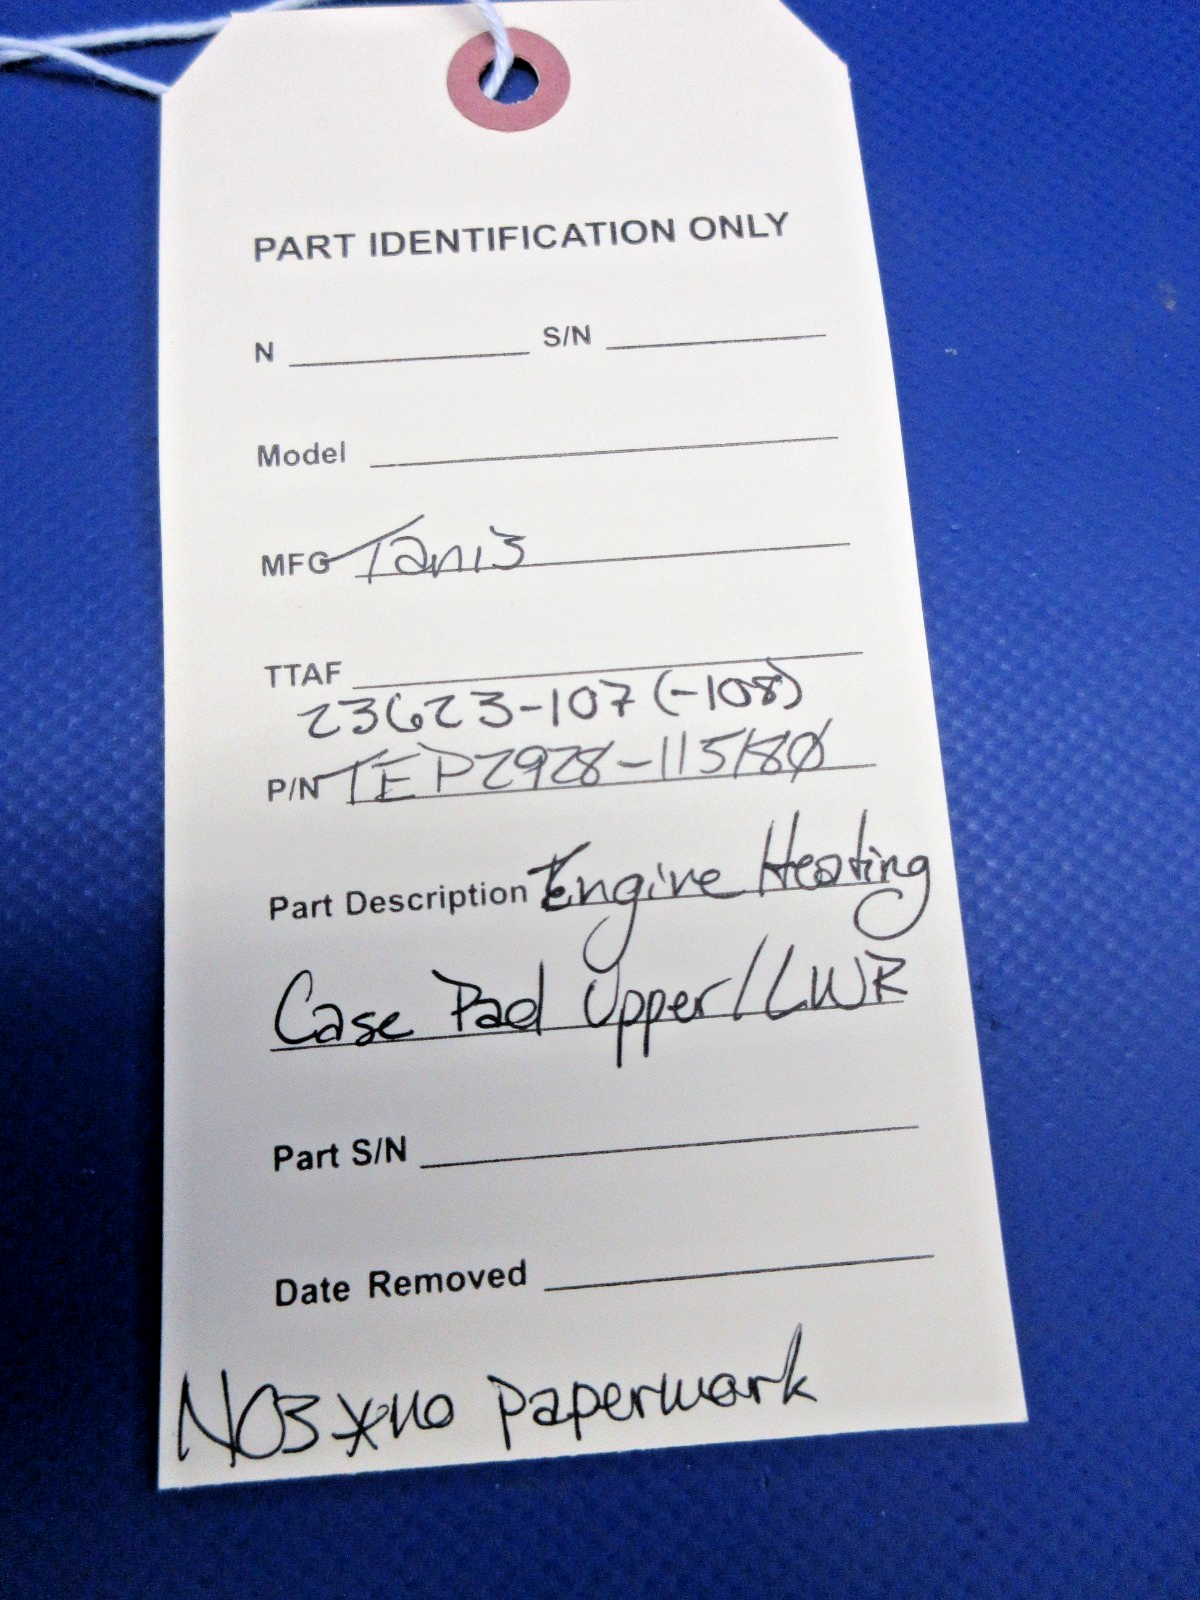 PART IDENTIFICATION ONLY
N S/N
Model
MFG Tanis
TTAF
23623-107 (-108)
P/N TEP2928-115/80
Part Description Engine Heating
Case Pad Upper/LWR
Part S/N
Date Removed
NOS *no paperwork